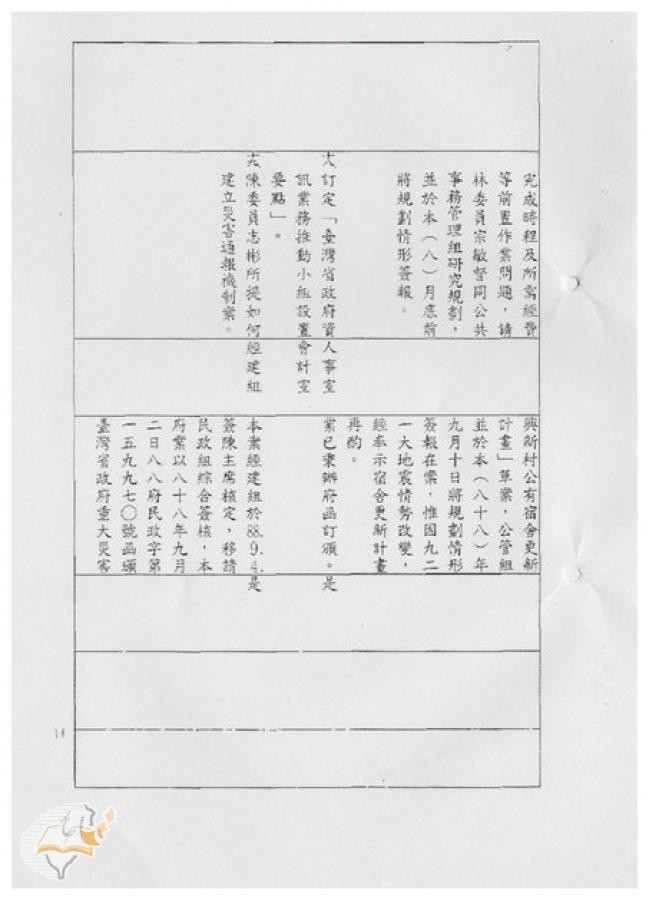 完成時程及所需經費
等前置作業問題，請
林委員宗敏督同公共
事務管理組研究規劃，
並於本（八）月底前
將規劃情形簽報。
訂定「臺灣省政府資
訊業務推動小組設置
要點」。
陳委員志彬所提如何
建立災害通報機制案。
人事室
會計室
經建組
興新村公有宿舍更新
計畫」草案，公管組
並於本（八十八）年
九月十日將規劃情形
簽報在案，惟因九二
一大地震情勢改變，
經奉示宿舍更新計畫
再酌。
業已彙辦府函訂頒。
本案經建組於88.9.4.
簽陳主席核定，移請
民政組綜合簽核，本
府業以八十八年九月
二日八八府民政字第
一五九九七〇號函頒
臺灣省政府重大災害
是
是